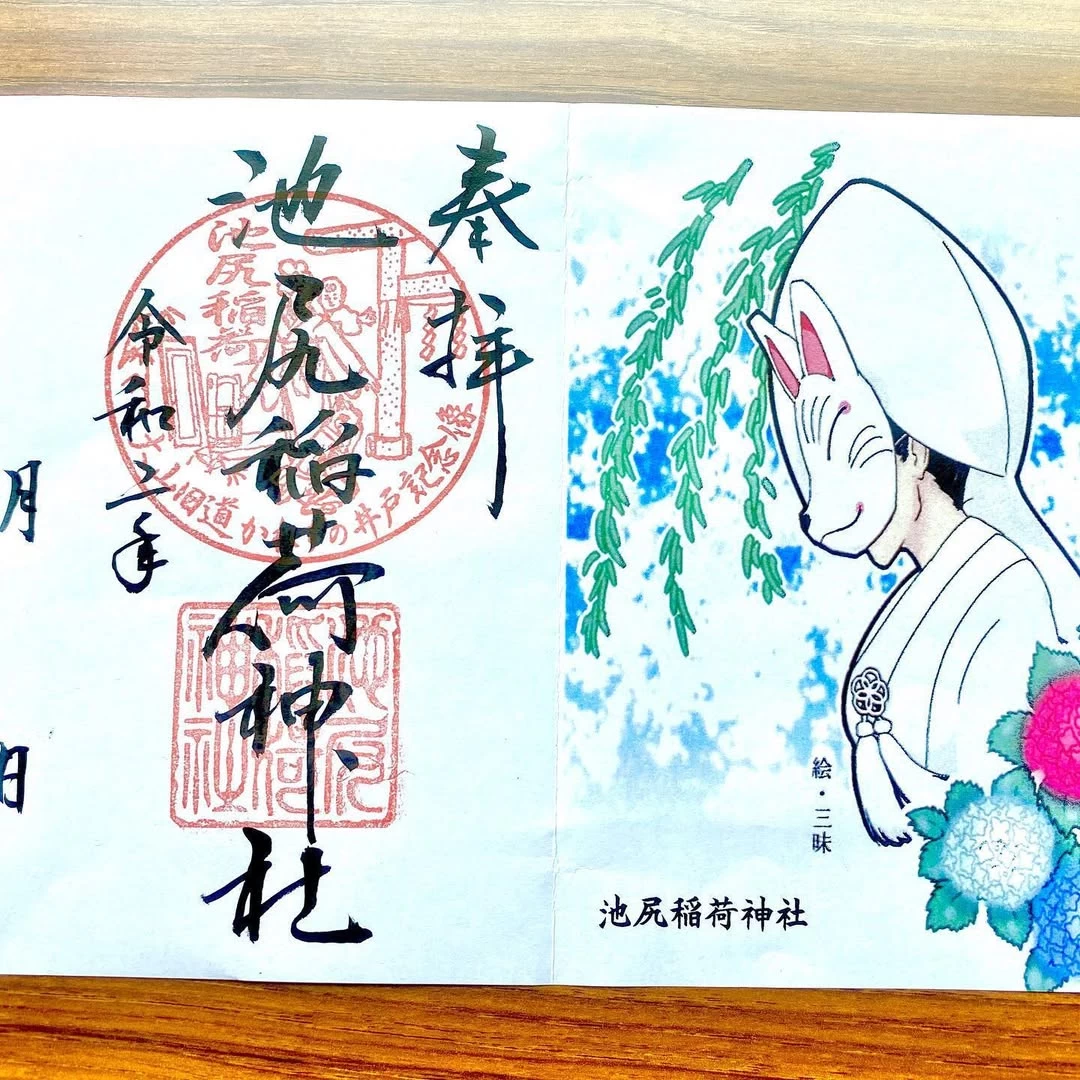 奉拝
池尻稲荷神社
令和二年
月
日
池尻稲荷
旧道
の井戸記念像
池尻
稲荷
神社
絵・三昧
池尻稲荷神社